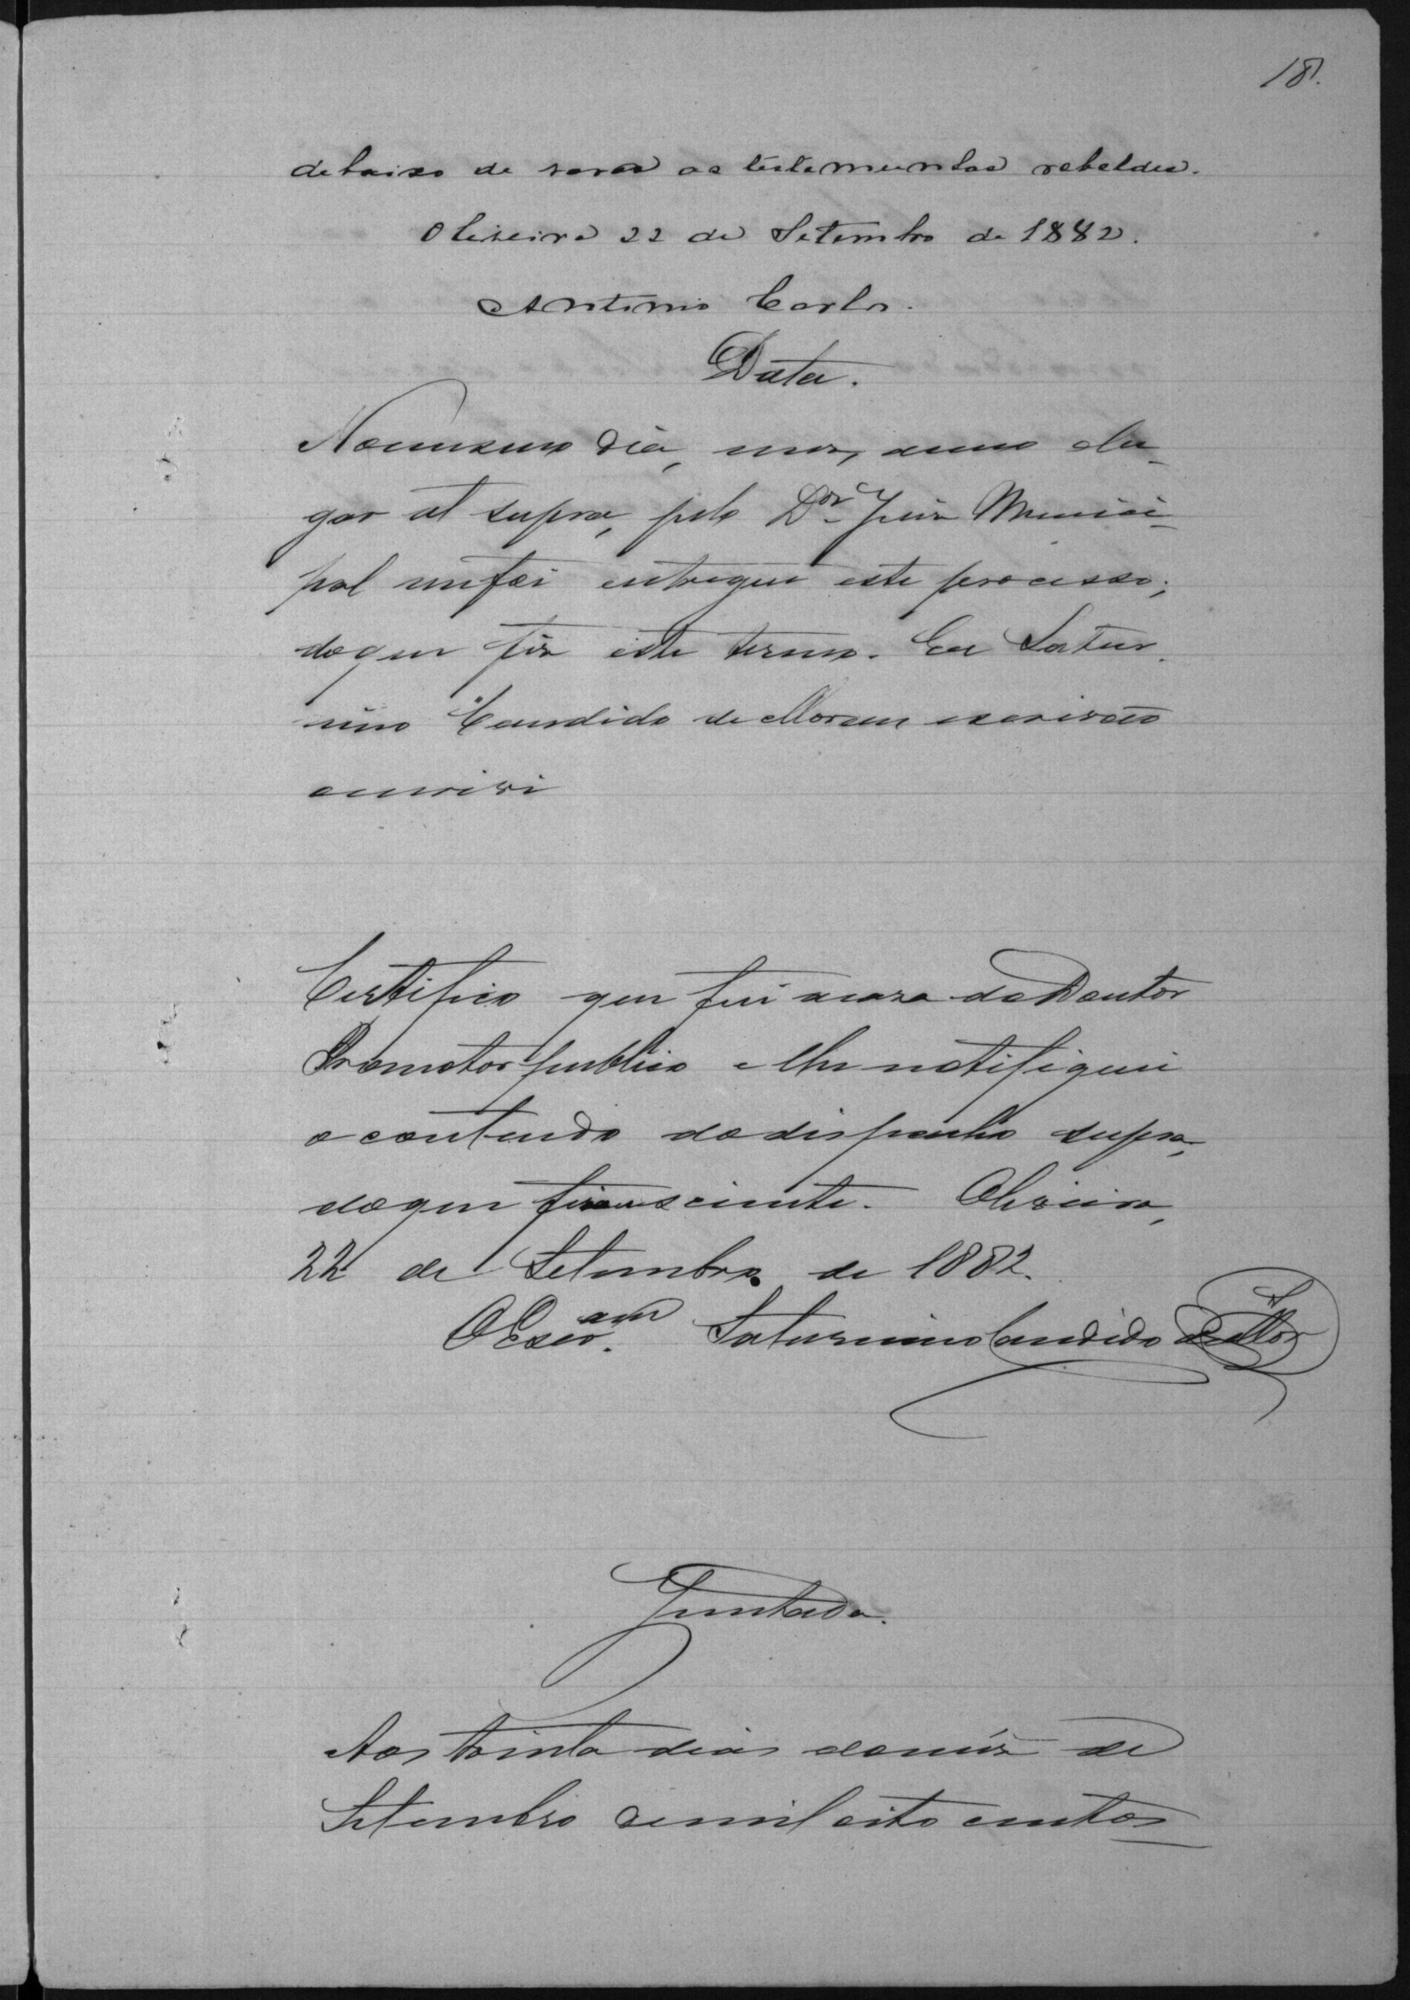 18.
debaixo de vara as testemunhas rebeldes.
Oliveira 22 de Setembro de 1882.
Antonio Carlos.
Data.
Nomesmo dia, mez, anno elu-
gar ut supra, pelo Dor Juiz Munici-
pal mefoi entregue este processo;
doque fiz este termo. Eu Satur-
nino Candido de Moraes escrivão
escrevi
Certifico que fui acaza do Doutor
Promotor publico e lhe notifiquei
o contendo do dispacho supra,
doque ficou sciente. Oliveira,
22 de Setembro de 1882.
O Escram. Saturnino Candido de Mor
Juntada.
Aos trinta dias domêz de
Setembro demil oito centos